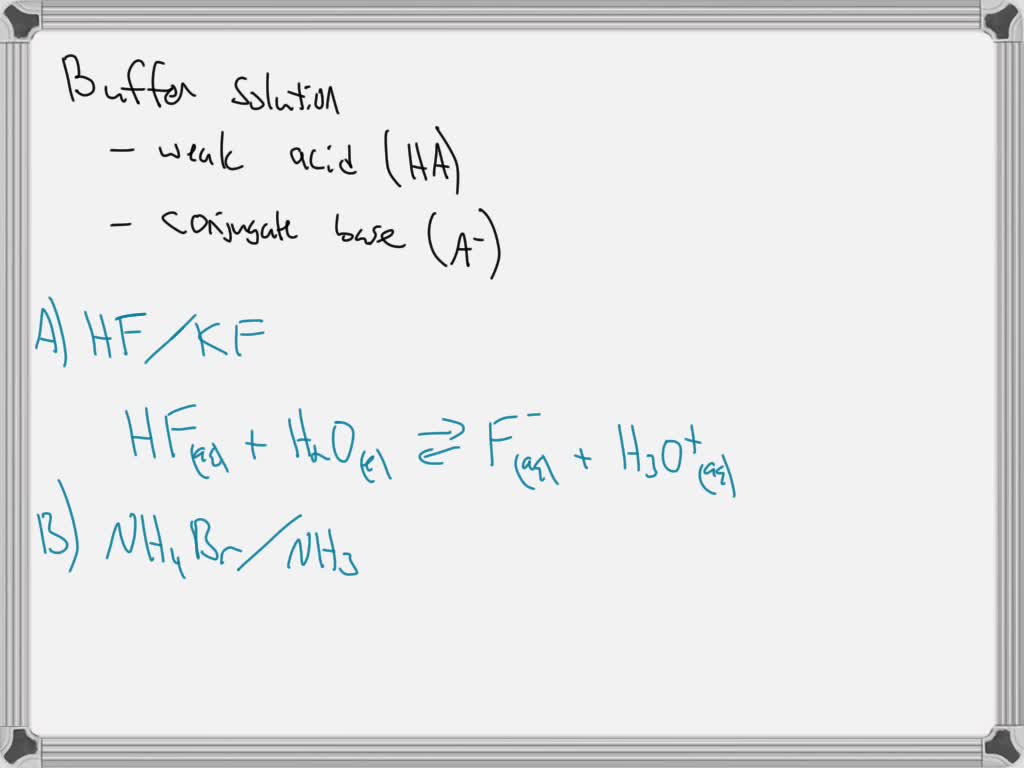 Buffer solution
- weak acid (HA)
- conjugate base (A⁻)
A) HF/KF
HF(aq) + H₂O(l) ⇌ F⁻(aq) + H₃O⁺(aq)
B) NH₄Br/NH₃